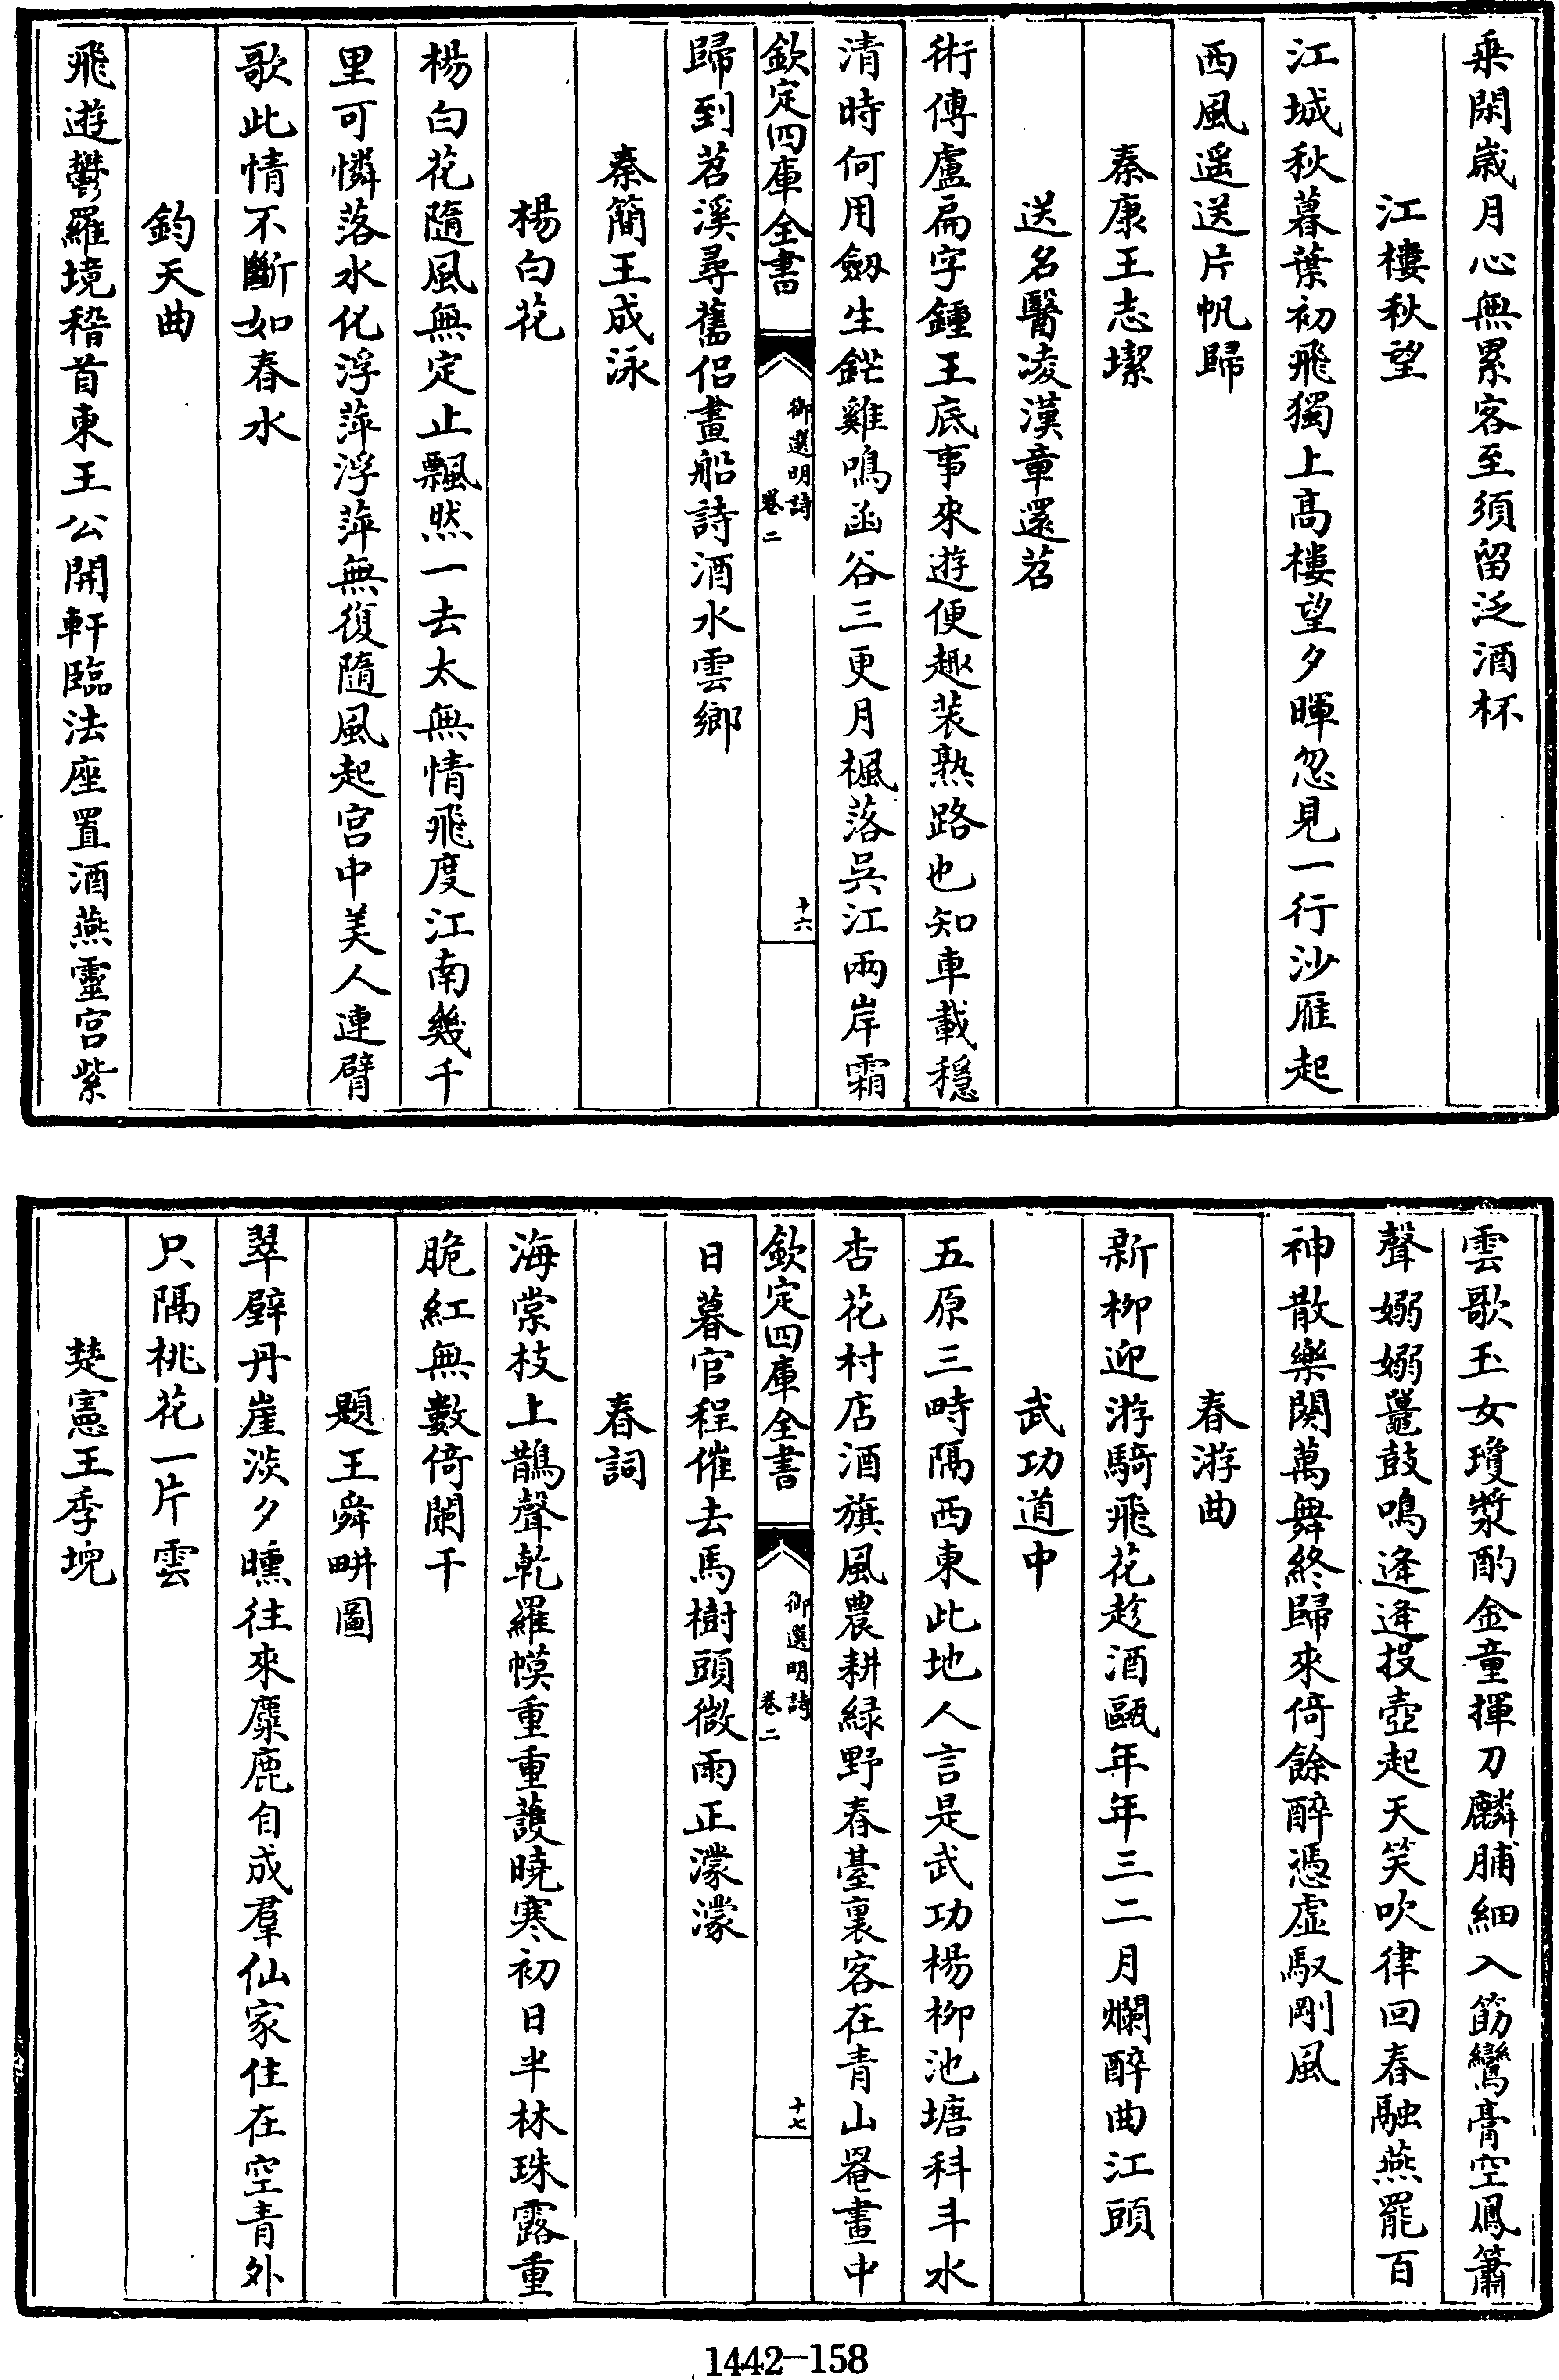 乗閑歲月心無累客至須留泛酒杯
江樓秋望
江城秋暮葉初飛獨上髙樓望夕暉忽見一行沙雁起
西風遥送片帆歸
秦康王志㓗
送名醫凌漢章還苕
術傳盧扁字鍾王底事來遊便趣装熟路也知車載穏
清時何用劔生鋩雞鳴函谷三更月楓落吳江兩岸霜
欽定四庫全書
御選明詩
卷二
十六
歸到苕溪尋舊侣畫船詩酒水雲鄉
秦簡王成泳
楊白花
楊白花隨風無定止飄然一去太無情飛度江南幾千
里可憐落水化浮萍浮萍無復隨風起宫中美人連臂
歌此情不斷如春水
鈞天曲
飛遊鬱羅境稽首東王公開軒臨法座置酒燕靈宫紫
雲歌玉女瓊漿酌金童揮刀麟脯細入筯鸞膏空鳳簫
聲嫋嫋鼉鼓鳴逄逄投壺起天笑吹律回春融燕罷百
神散樂闋萬舞終歸來倚餘醉憑虚馭剛風
春游曲
新柳迎游騎飛花趁酒甌年年三二月爛醉曲江頭
武功道中
五原三畤隔西東此地人言是武功楊柳池塘科斗水
杏花村店酒旗風農耕緑野春臺裏客在青山罨畫中
欽定四庫全書
御選明詩
卷二
十七
日暮官程催去馬樹頭微雨正濛濛
春詞
海棠枝上鵲聲乾羅幙重重護曉寒初日半林珠露重
脆紅無數倚闌干
題王舜畊圖
翠壁丹崖淡夕曛往來麋鹿自成羣仙家住在空青外
只隔桃花一片雲
楚憲王季堄
1442-158